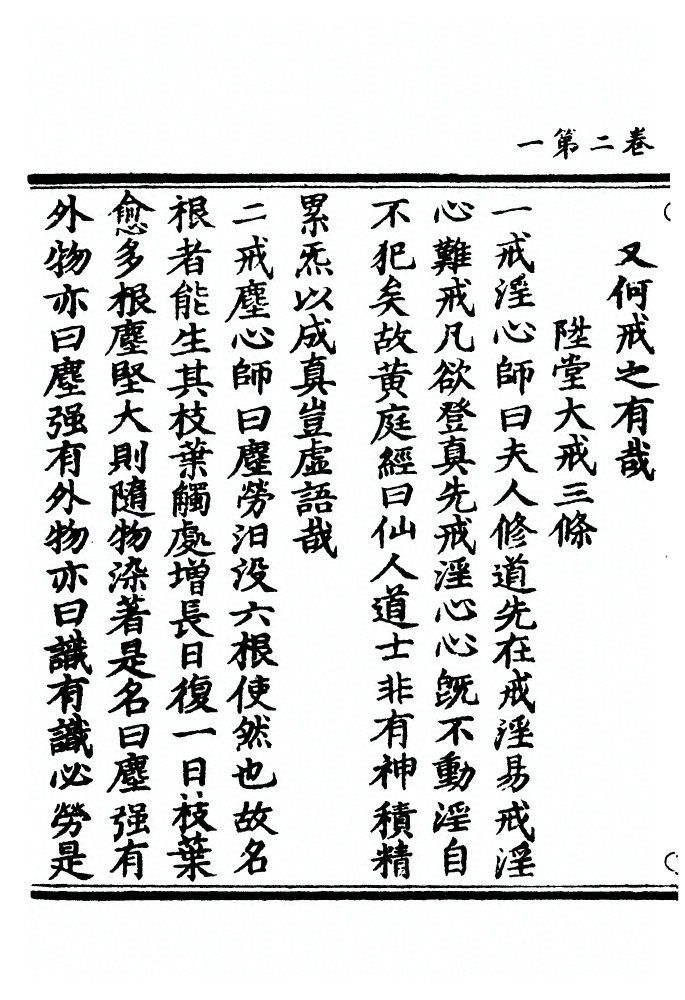 卷二第一
又何戒之有哉
陞堂大戒三條
一戒淫心師曰夫人修道先在戒淫易戒淫
心難戒凡欲登真先戒淫心心旣不動淫自
不犯矣故黃庭經曰仙人道士非有神積精
累炁以成真豈虛語哉
二戒塵心師曰塵勞汩没六根使然也故名
根者能生其枝葉觸處增長日復一日枝葉
愈多根塵堅大則隨物染著是名曰塵强有
外物亦曰塵强有外物亦曰識有識必勞是